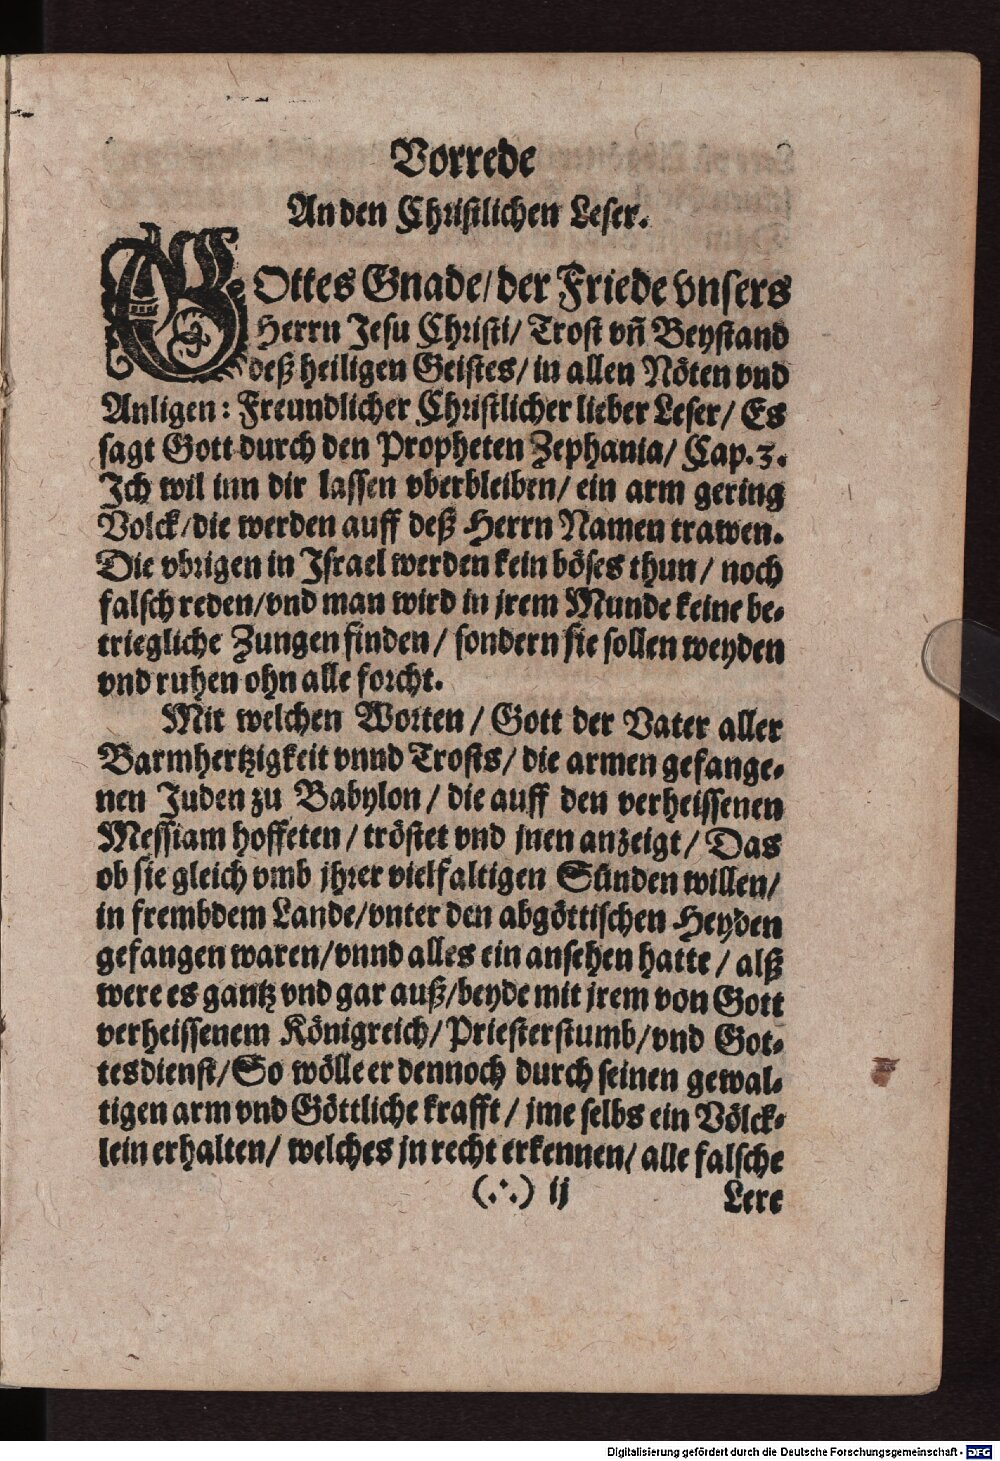 Vorrede
An den Christlichen Leser.
GOttes Gnade/ der Friede vnsers
Herrn Jesu Christi/ Trost vñ Beystand
deß heiligen Geistes/ in allen Nöten vnd
Anligen: Freundlicher Christlicher lieber Leser/ Es
sagt Gott durch den Propheten Zephania/ Cap. 3.
Ich wil inn dir lassen vberbleiben/ ein arm gering
Volck/ die werden auff deß Herrn Namen trawen.
Die vbrigen in Israel werden kein böses thun/ noch
falsch reden/ vnd man wird in jrem Munde keine be-
triegliche Zungen finden/ sondern sie sollen weyden
vnd ruhen ohn alle forcht.
Mit welchen Worten/ Gott der Vater aller
Barmhertzigkeit vnnd Trosts/ die armen gefange-
nen Juden zu Babylon/ die auff den verheissenen
Messiam hoffeten/ tröstet vnd jnen anzeigt/ Das
ob sie gleich vmb jhrer vielfaltigen Sünden willen/
in frembdem Lande/ vnter den abgöttischen Heyden
gefangen waren/ vnnd alles ein ansehen hatte/ alß
were es gantz vnd gar auß/ beyde mit jrem von Gott
verheissenem Königreich/ Priesterstumb/ vnd Got-
tesdienst/ So wölle er dennoch durch seinen gewal-
tigen arm vnd Göttliche krafft/ jme selbs ein Völck-
lein erhalten/ welches jn recht erkennen/ alle falsche
(∴) ij Lere
Digitalisierung gefördert durch die Deutsche Forschungsgemeinschaft - DFG